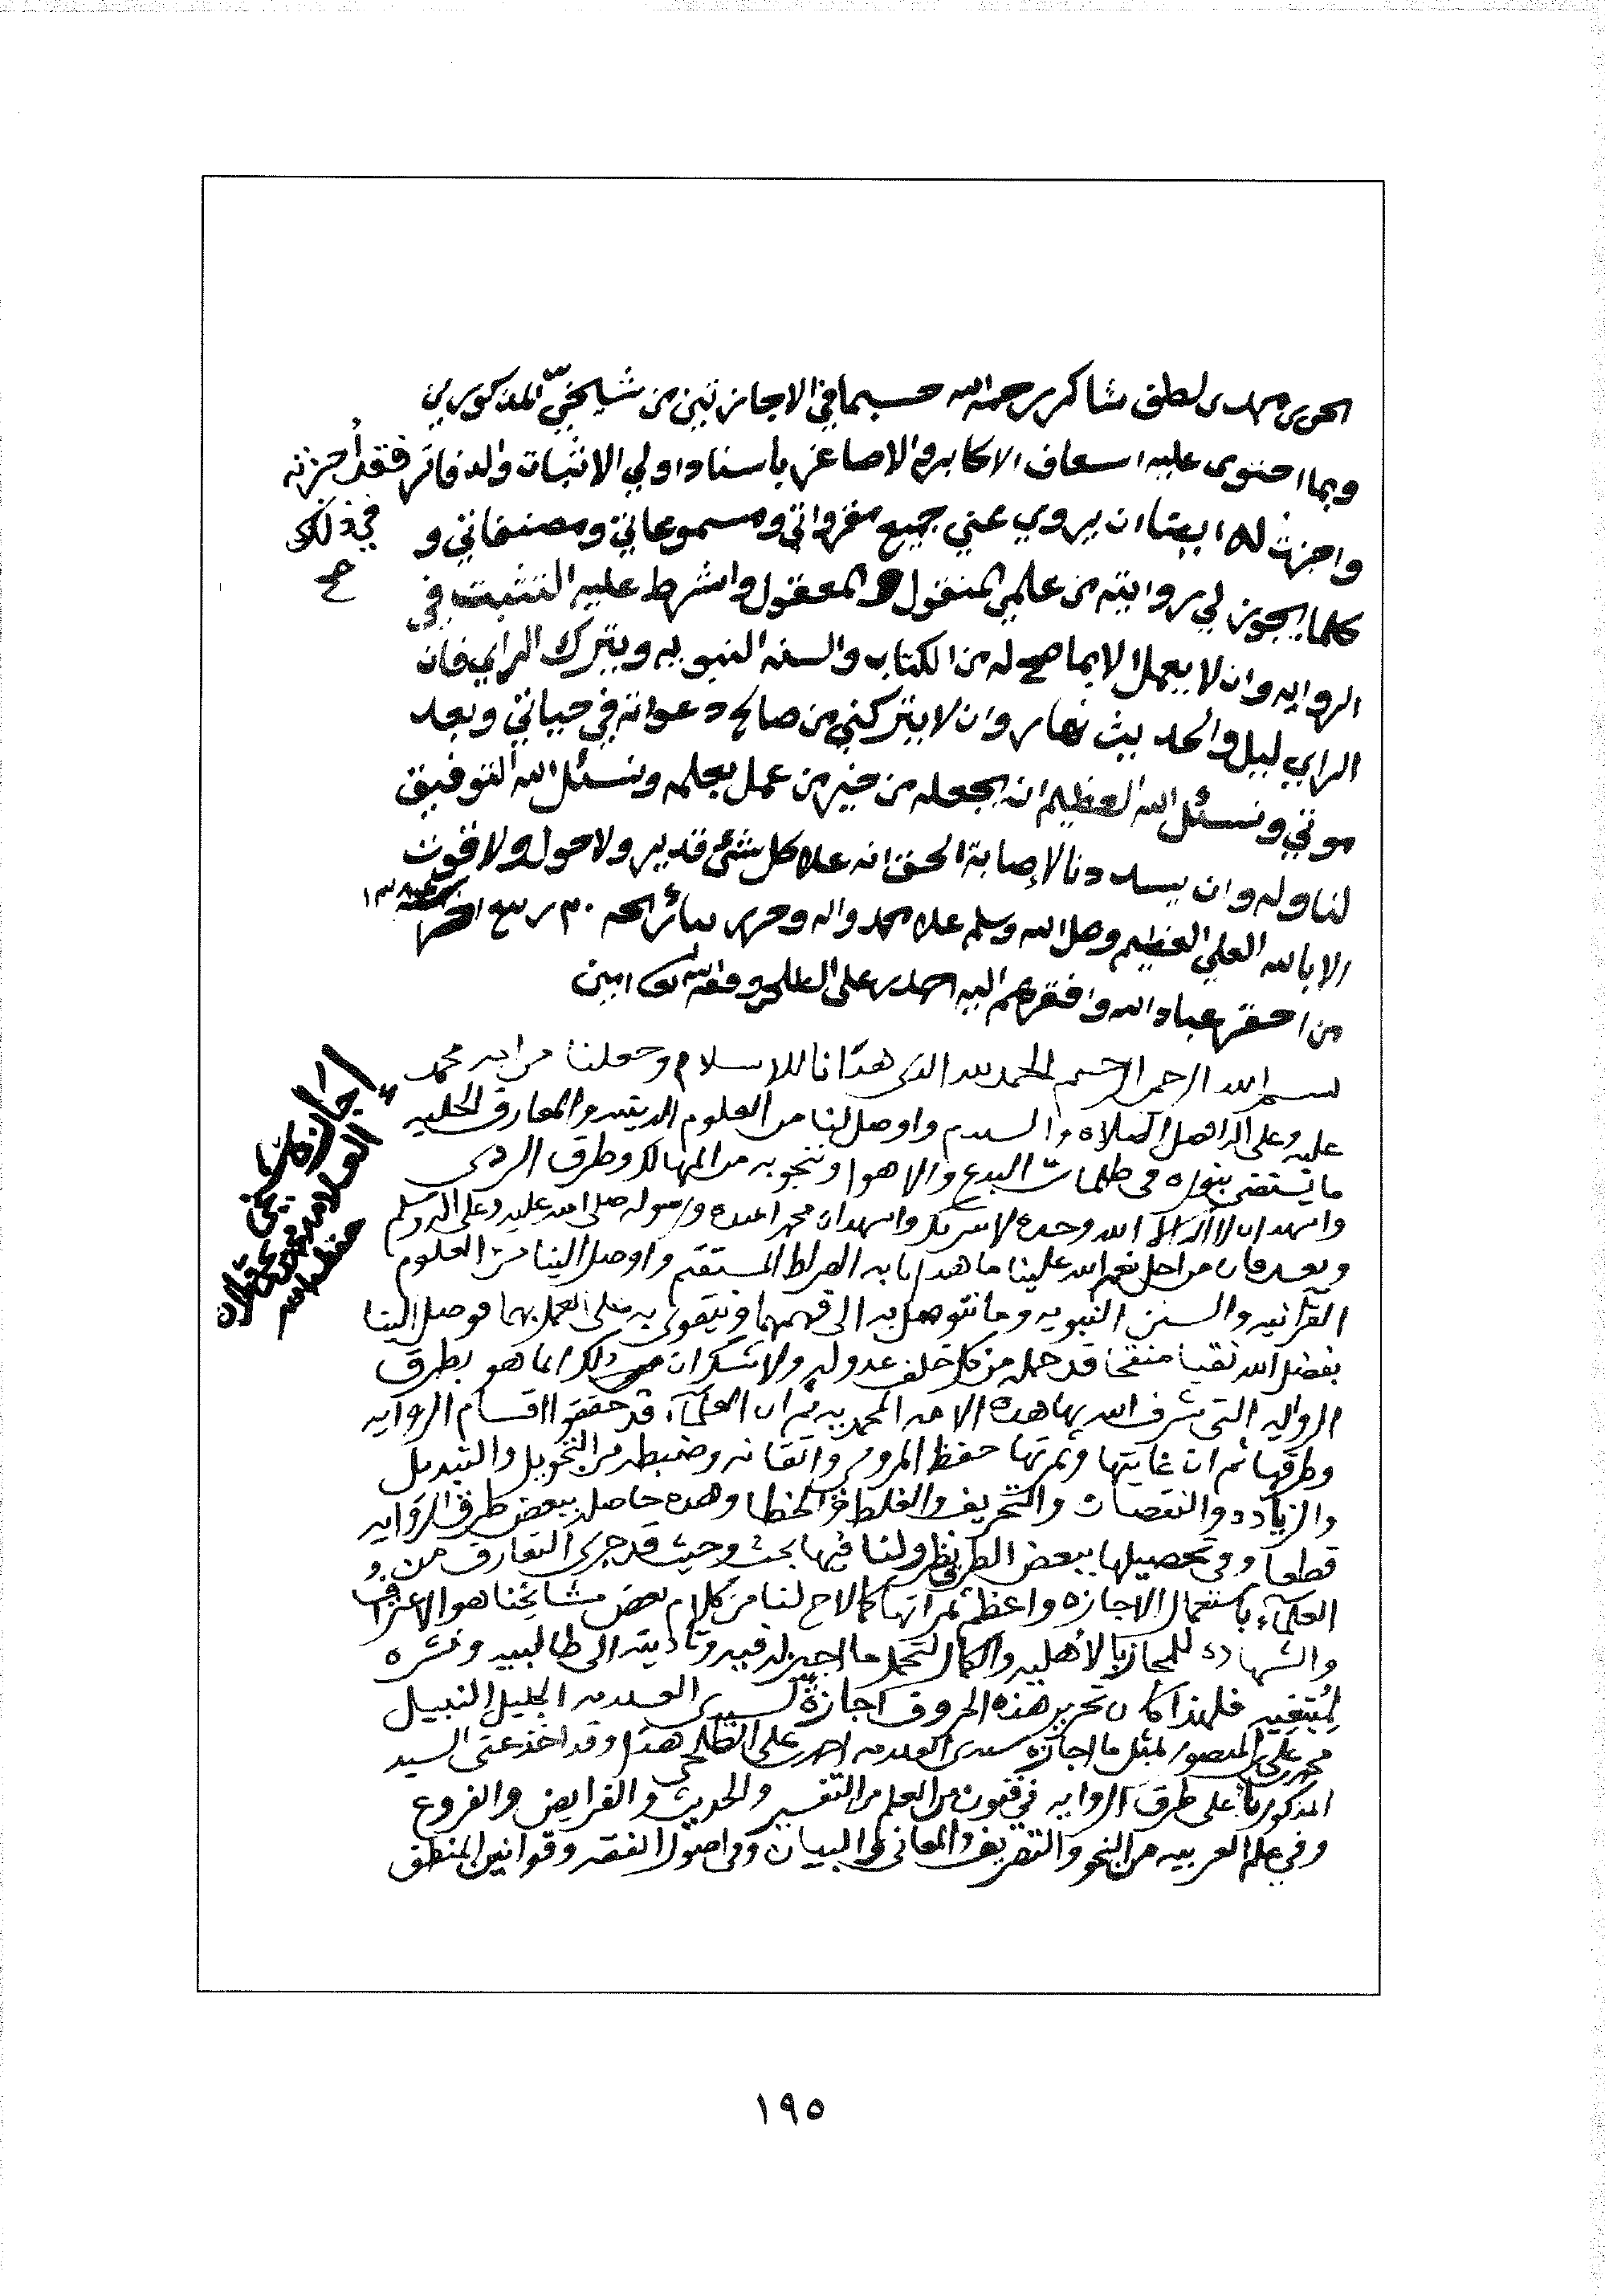 احمد لطف شاكر رحمه الله حسبما في الاجازتين من شيخيّ المذكورين
وبما احتوى عليه اسعاف الاكابر والاصاغر باسناد اولي الاثبات والدفاتر فقد أجزته
في ذلك
صح
واجزت له ايضا ان يروي عني جميع مقرواتي ومسموعاتي ومصنفاتي و
كلما يجوز لي روايته من علمي المنقول والمعقول واشرط عليه التثبت في
الروايه وان لا يعمل الا بما صح له من الكتاب والسنه النبويه ويترك الراي فان
الراي ليل والحديث نهار وان لا يتركني من صالح دعواته في حياتي وبعد
موتي ونسئل الله العظيم ان يجعله من خير من عمل بعلمه ونسئل الله التوفيق
لنا وله وان يسددنا لإصابة الحق انه علا كل شئ قدير ولا حول ولا قوت
الا بالله العلي العظيم وصل الله وسلم علا محمد واله وحرر ٣٠ ربيع اخر
من احقر عباد الله وافقرهم اليه احمد علي الطلحي وفقه الله امين
بسم الله الرحمن الرحيم الحمد لله الذي هدانا للاسلام وجعلنا من امه محمد
عليه وعلى اله افضل الصلاه والسلام واوصل لنا من العلوم الدينيه والمعارف الجليه
ما نستضي بنوره في ظلمات البدع والاهوا وننجو به من المهالك وطرق الردى
واشهد ان لا اله الا الله وحده لا شريك له واشهد ان محمدا عبده ورسوله صلى الله عليه وعلى اله وسلم
وبعد فان من اجل نعم الله علينا ما هدانا به الصراط المستقيم واوصل الينا من العلوم
القرآنيه والسنن النبويه وما نتوصل به الى فهمهما ونتقوى به على العمل بهما فوصل الينا
بفضل الله نقيا منقحا قد حمله من كل خلف عدوله ولا شك ان ذلك انما هو بطرق
الروايه التي شرف الله بها هذه الامه المحمديه ثم ان العلمآء قد حققوا اقسام الروايه
وطرقها ثم ان غايتها وثمرتها حفظ المروي واتقانه وضبطه من التحويل والتبديل
والزياده والنقصان والتحريف والغلط والخطا وهذه حاصله ببعض طرق الروايه
قطعا وفي تحصيلها ببعض الطرق نظر ولنا فيها بحث وحيث قد جرى التعارف من
العلمآء باستعمال الاجازه واعظم ثمراتها كما لاح لنا من كلام بعض مشائخنا هو الاعتراف
والشهاده للمجاز بالأهليه والكمال لتحمل ما اجيز له فيه وتاديته الى طالبيه ونشره
لمبتغيه فلهذا كان تحرير هذه الحروف اجازة لسيدي العلامه الجليل النبيل
محمد علي المنصور بمثل ما اجازه سيدي العلامه احمد علي الطلحي هذا وقد اخذ عني السيد
المذكور على طرق الروايه في فنون من العلم من التفسير والحديث والفرايض والفروع
وفي علم العربيه من النحو والتصريف والمعاني والبيان وفي اصول الفقه وقوانين المنطق
إجازة
شيخي
العلامه
حفظه الله
١٩٥